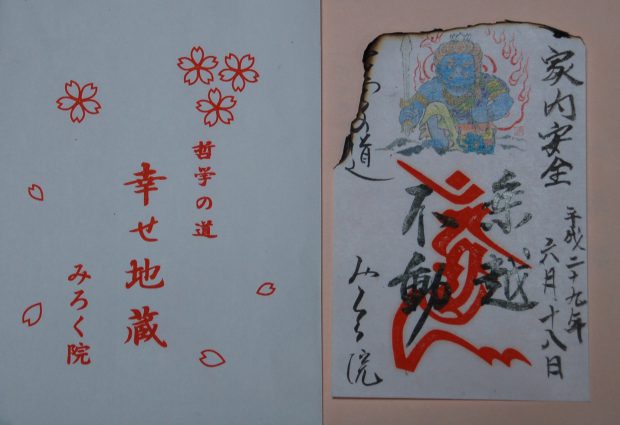 哲学の道
幸せ地蔵
みろく院
家内安全
平成二十九年
六月十八日
乗越
不動
の道
みろく院